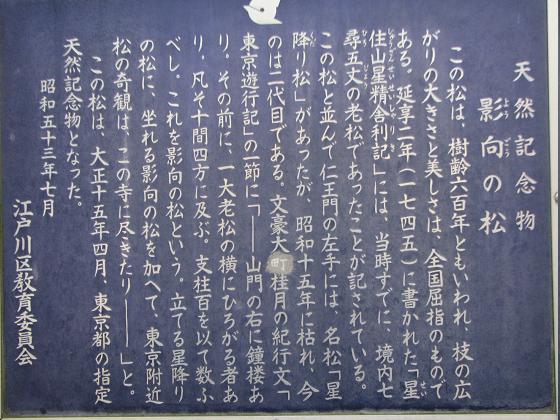 天然記念物
影向の松
ようごう
この松は、樹齢六百年ともいわれ、枝の広
がりの大きさと美しさは、全国屈指のもので
ある。延享二年(一七四五)に書かれた「星
住山星精舎利記」には、当時すでに、境内七
尋五丈の老松であったことが記されている。
この松と並んで仁王門の左手には、名松「星
降り松」があったが、昭和十五年に枯れ、今
のは二代目である。文豪大町桂月の紀行文「
東京遊行記」の一節に「――山門の右に鐘楼あ
り。その前に、一大老松の横にひろがる者あ
り、凡そ十間四方に及ぶ。支柱百を以て数ふ
べし。これを影向の松という。立てる星降り
の松に、坐れる影向の松を加へて、東京附近
松の奇観は、この寺に尽きたり――」と。
この松は、大正十五年四月、東京都の指定
天然記念物となった。
昭和五十三年七月
江戸川区教育委員会